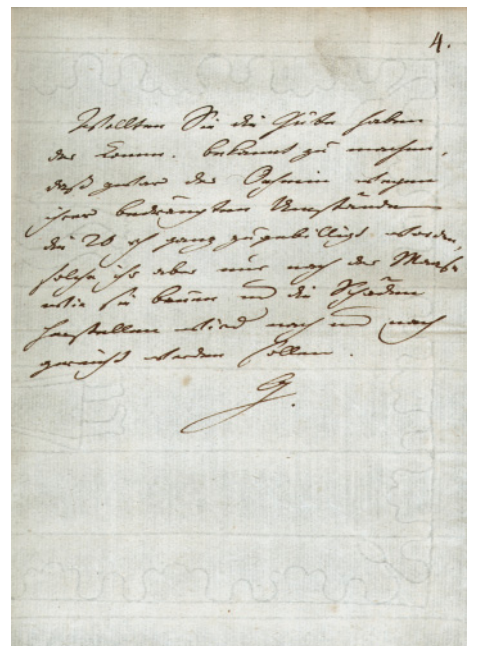 4.
Wollten Sie die Güte haben
der Comm. bekannt zu machen,
daß zwar der wegen
ihrer bedrängten Umstände
die 20 rh ganz zugebilligt worden,
solche ihr aber nur nach der Maase
wie sie bauen und die Schäden
herstellen wird nach und nach
gereicht werden sollen.
G.